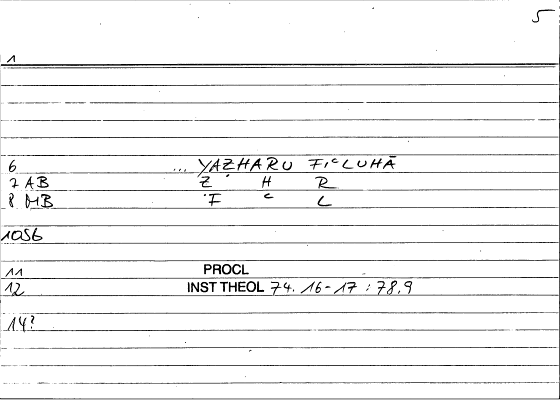 5
1
6 ... YAẒHARU FIᶜLUHĀ
7 AB Ẓ H R
8 MB F ᶜ L
10SG
11 PROCL
12 INST THEOL 74. 16-17 : 78.9
14?